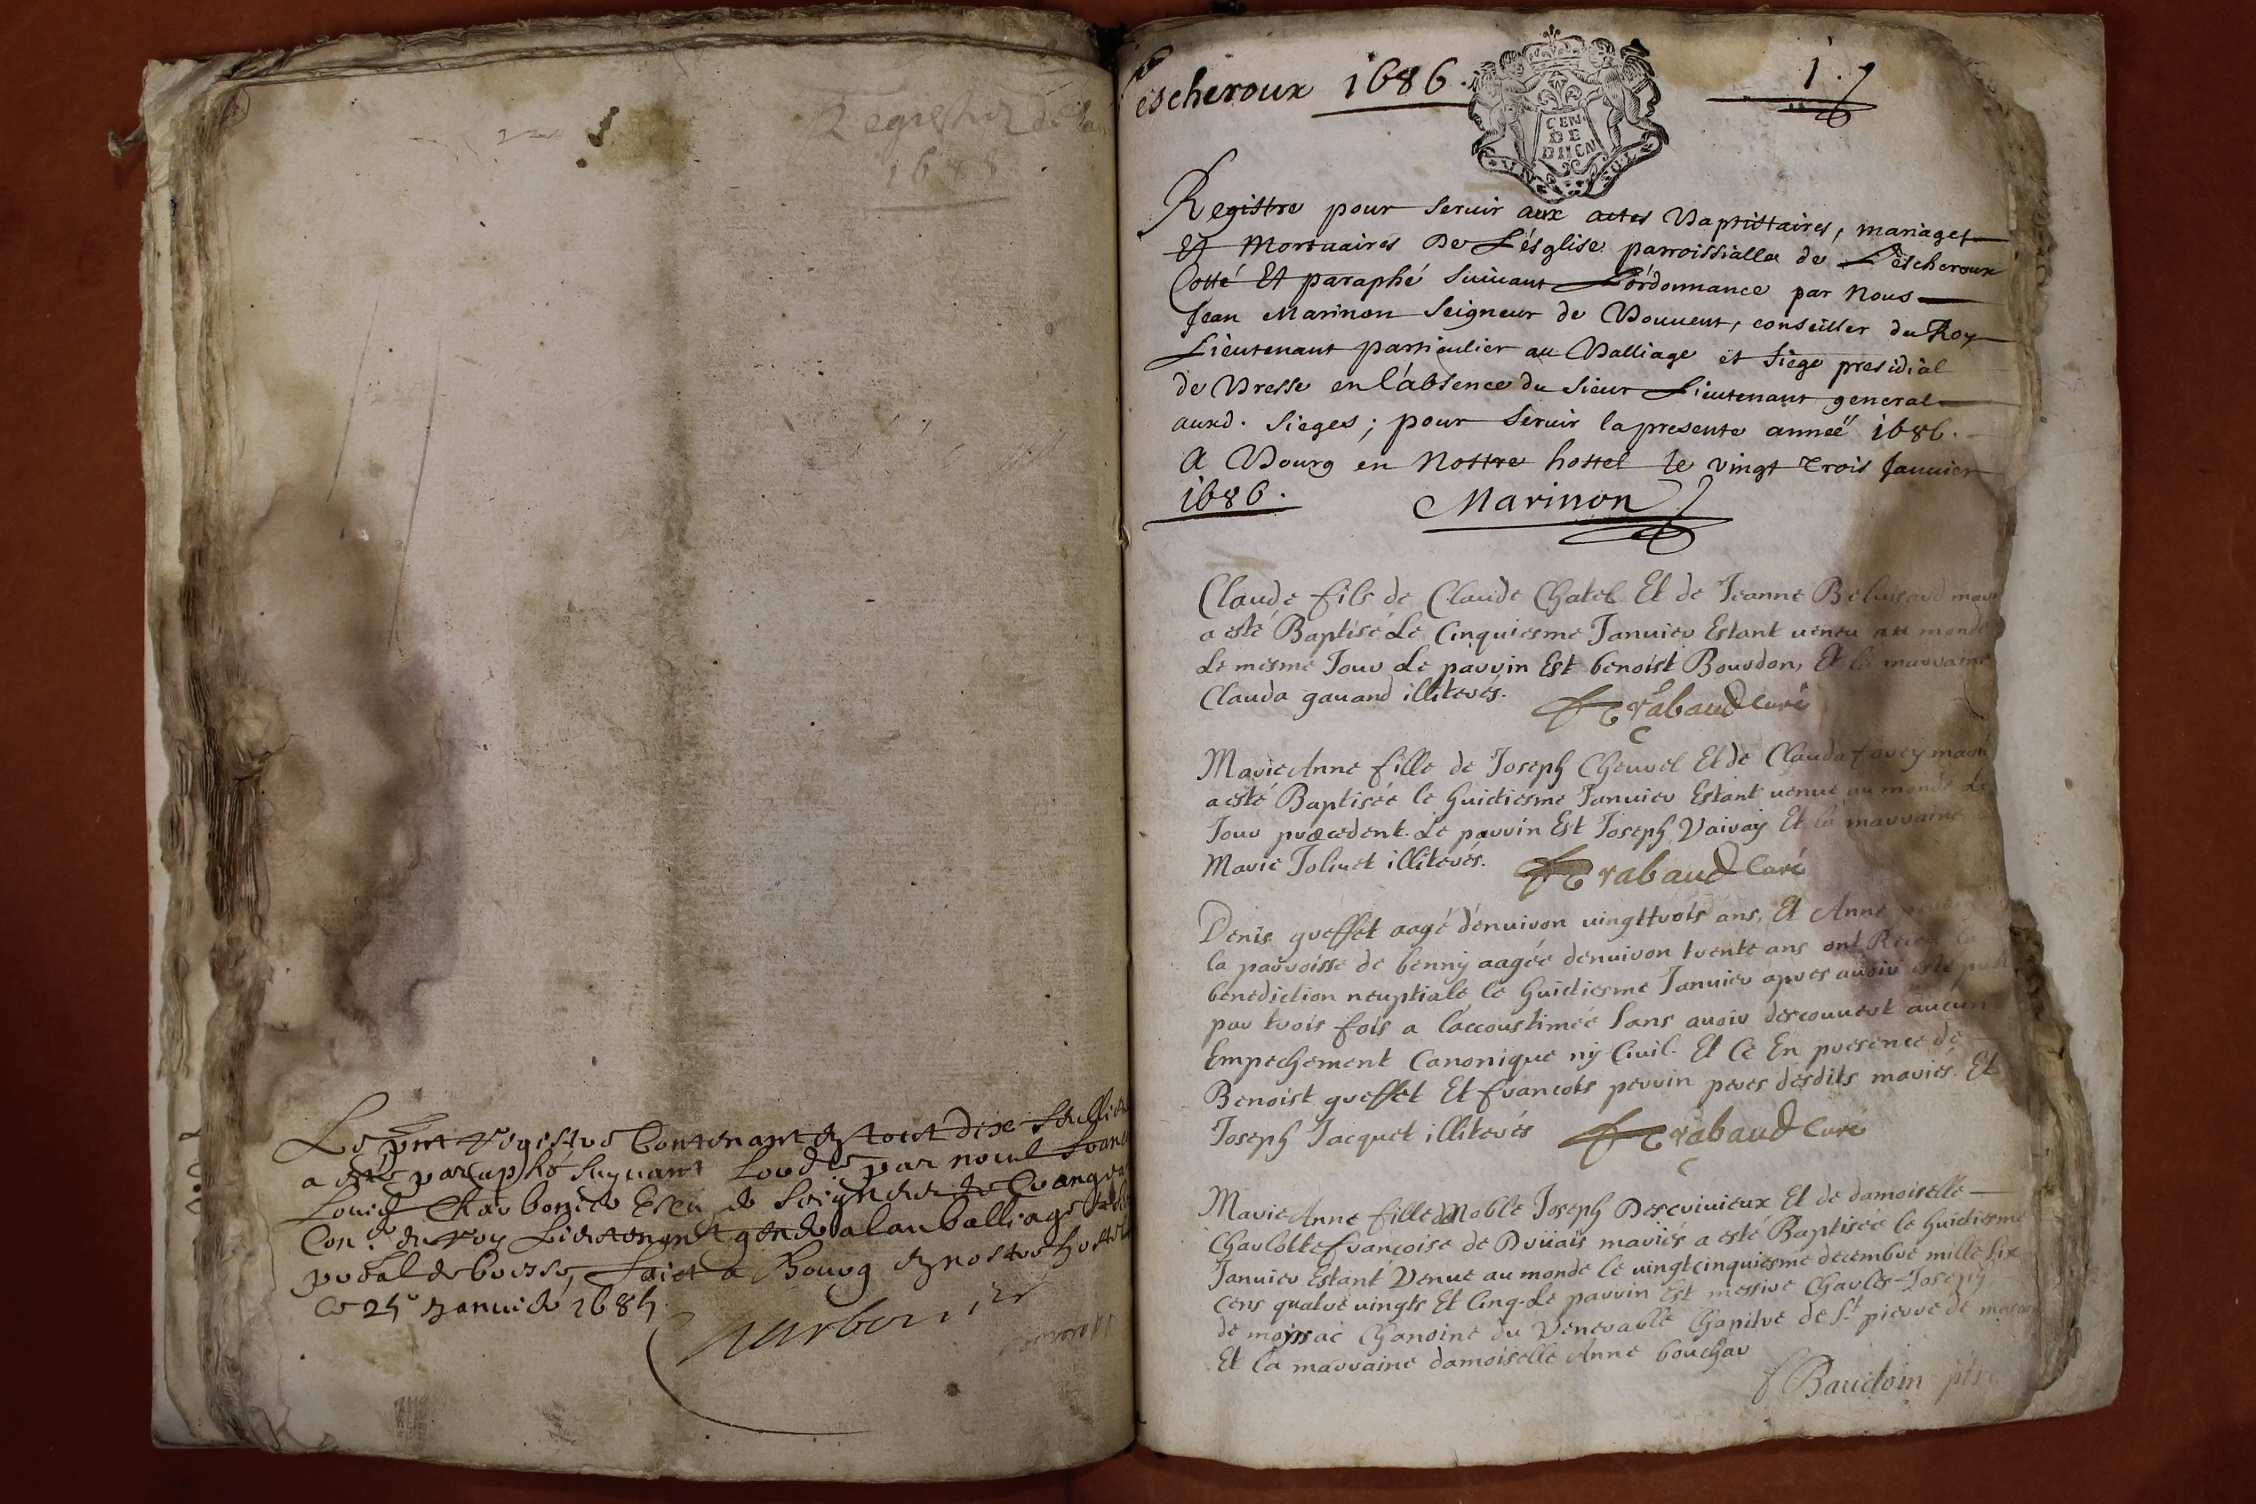 Registre de
1685
Le pnt registre Contenant en tout dix feulliets
a esté parapphé suyvant lord.ce par nous
Louis Charbonnier Escu. Seigneur de Crangeac
Con.er du Roy Lieutenant general au balliage
pndal de bresse, faict a Bourg en nostre hostel
ce 25e Janvier 1685
Charbonnier
escheroux 1686.
1.
CEN.
DE
DIION
Registre pour seruir aux actes Baptistaires, mariages
Et Mortuaires De L'ésglise parroissialle de L'escheroux
Cotté Et paraphé suiuant L'órdonnance par Nous
Jean Marinon Seigneur de Bouuent, conseiller du Roy
Lieutenant particulier au Balliage et siege presidial
de Bresse en l'absence du sieur Lieutenant general
auxd. sieges; pour seruir la presente anneé 1686.
A Bourg en Nostre hostel le vingt Trois Januier
1686.
Marinon
Claude fils de Claude Chatel Et de Jeanne
a esté Baptisé Le Cinquiesme Januier Estant uenu au monde
Le mesme Jour Le parrin Est benoist Bourdon, Et la marraine
Clauda gauand illiterés.
Trabaud Curé
Marie Anne fille de Joseph Cheurel Et de Clauda forey
a esté Baptiseé le huictiesme Januier Estant uenue au monde Le
Jour præcedent. Le parrin Est Joseph Vairay Et la marraine
Marie Joliuet illiterés.
Trabaud Curé
Denis greffet aagé d'enuiron uingttrois ans, Et Anne
la parroisse de benny aagée denuiron trente ans ont Receu la
benediction neuptiale le huictiesme Januier apres auoir esté
par trois fois a l'accoustimée sans auoir descouuert aucun
Empechement Canonique ny Ciuil. Et Ce En presence de
Benoist greffet Et francois perrin peres desdits mariés. Et
Joseph Jacquet illiterés
Trabaud Curé
Marie Anne fille de Noble Joseph Descriuieux Et de damoiselle
Charlotte francoise de Douais mariés a esté Baptisée le huictiesme
Januier Estant Venue au monde le uingtcinquiesme decembre mille six
cens quatre uingts Et Cinq. Le parrin Est messire Charles-Joseph
de moyriac Chanoine du Venerable Chapitre de St. pierre de mascon
Et la marraine damoiselle Anne bouchar
Baudoin ptre